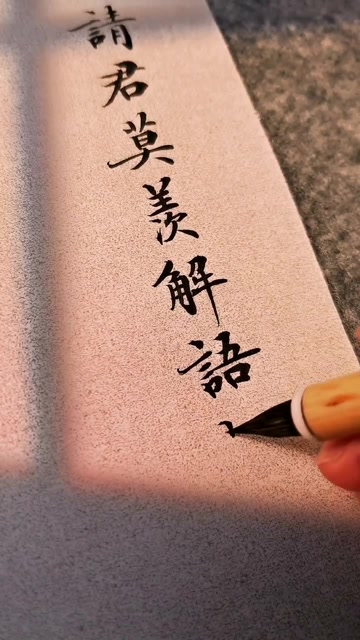 請君莫羨解語